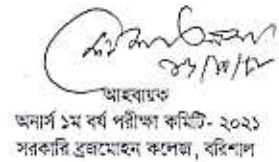 আহবায়ক
অনার্স ১ম বর্ষ পরীক্ষা কমিটি- ২০২১
সরকারি ব্রজমোহন কলেজ, বরিশাল